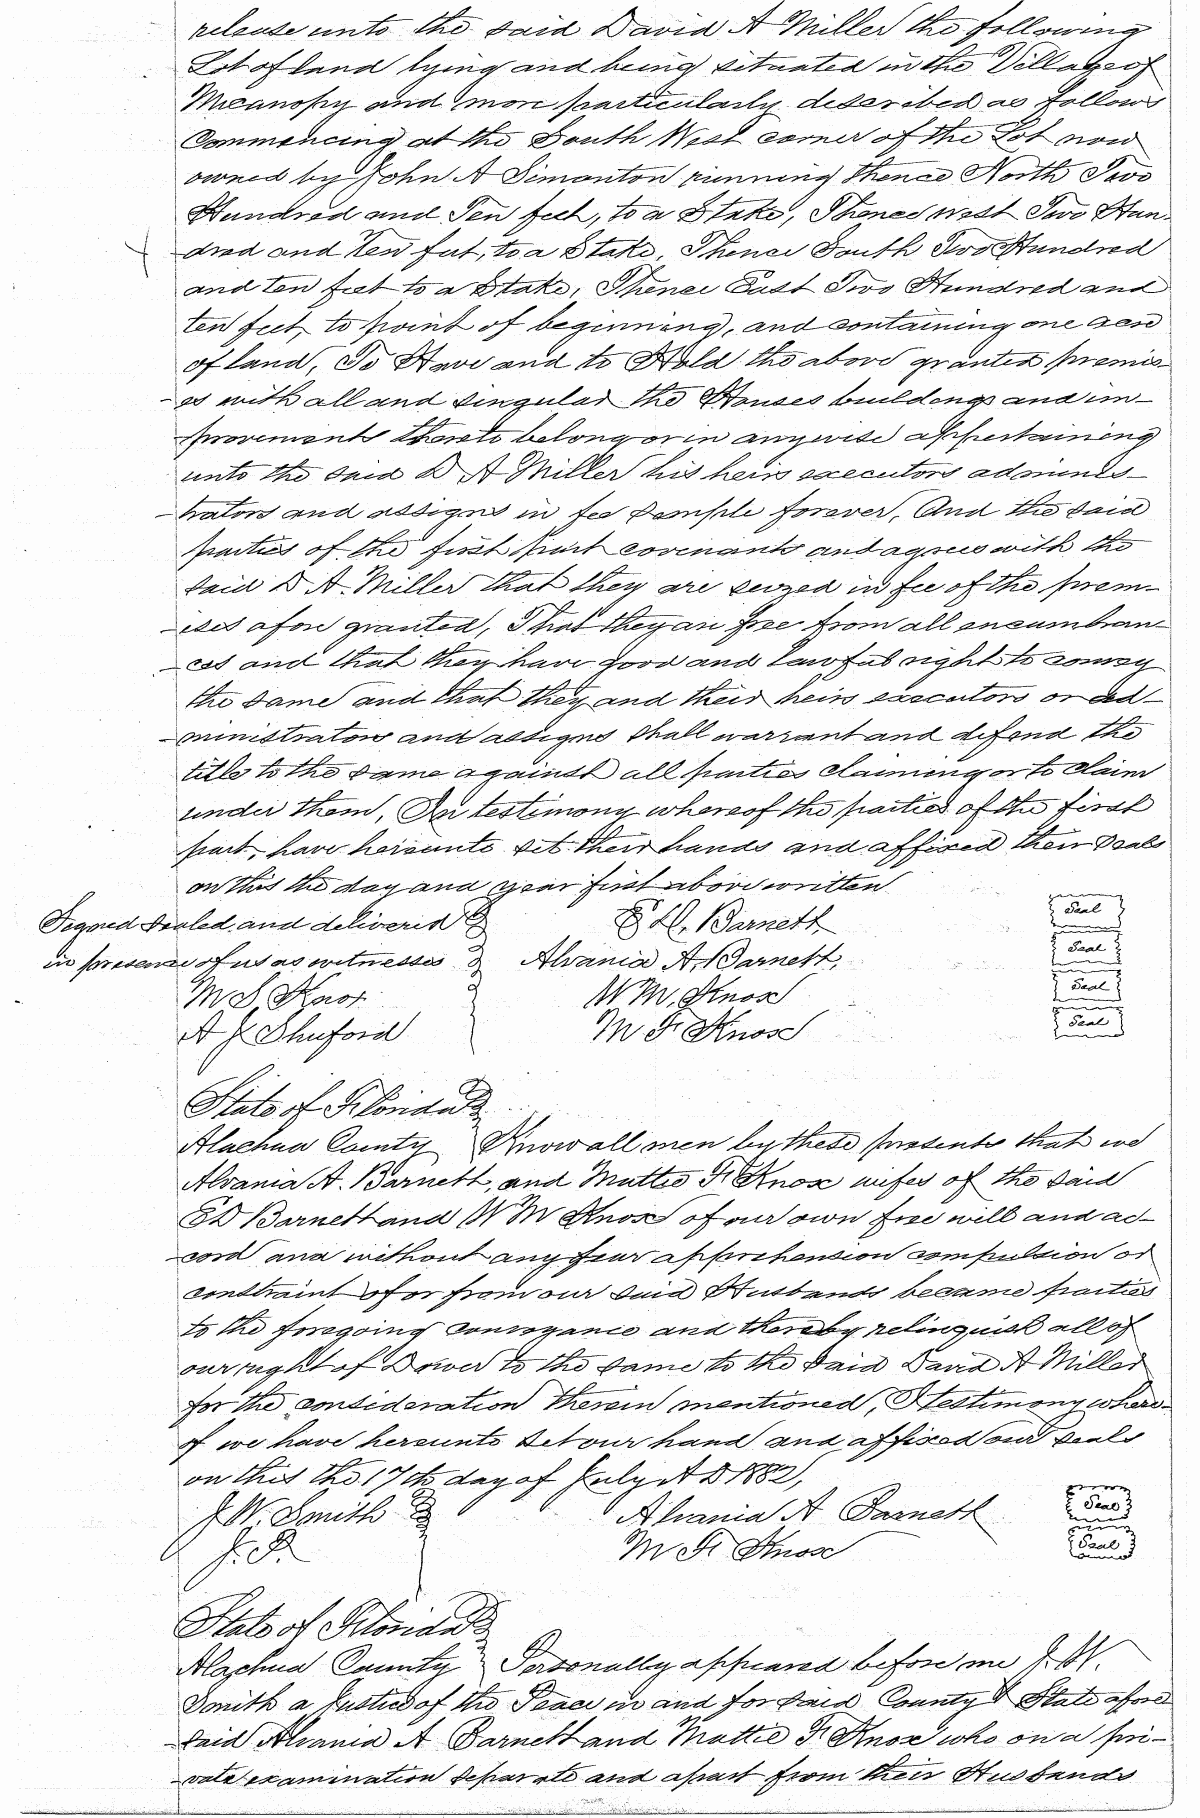 release unto the said David A Miller the following
Lot of land lying and being situated in the Village of
Micanopy and more particularly described as follows
Commencing at the South West corner of the Lot now
owned by John A Simonton running thence North Two
Hundred and Ten feet, to a Stake, Thence west Two Hun-
dred and Ten feet, to a Stake, Thence South Two Hundred
and ten feet to a Stake, Thence East Two Hundred and
ten feet, to point of beginning, and containing one acre
of land, To Have and to Hold the above granted premis-
es with all and singular the Houses buildings and im-
provements thereto belong or in anywise appertaining
unto the said D A Miller his heirs executors adminis-
trators and assigns in fee simple forever, And the said
parties of the first part covenants and agrees with the
said D A. Miller that they are seized in fee of the prem-
ises afore granted, That they are free from all encumbran-
ces and that they have good and lawful right to convey
the same and that they and their heirs executors or ad-
ministrators and assigns shall warrant and defend the
title to the same against all parties claiming or to claim
under them, In testimony whereof the parties of the first
part, have hereunto set their hands and affixed their seals
on this the day and year first above written
Signed Sealed, and delivered E D. Barnett Seal
in presence of us as witnesses Alvania A. Barnett, Seal
M S Knox W M, Knox Seal
A J Shuford M F Knox Seal
State of Florida
Alachua County Know all men by these presents that we
Alvania A. Barnett, and Mattie F Knox wifes of the said
E D Barnett and W M Knox of our own free will and ac-
cord and without any fear apprehension compulsion or
constraint of or from our said Husbands became parties
to the foregoing conveyance and thereby relinquish all of
our right of Dower to the same to the said David A Miller
for the consideration therein mentioned, I testimony where-
of we have hereunto set our hand and affixed our seals
on this the 17th day of July A D 1882,
J W. Smith Alvania A Barnett Seal
J. P. M F Knox Seal
State of Florida
Alachua County Personally appeared before me J. W.
Smith a Justice of the Peace in and for said County & State afore
said Alvania A Barnett and Mattie F Knox who on a pri-
vate examination separate and apart from their Husbands